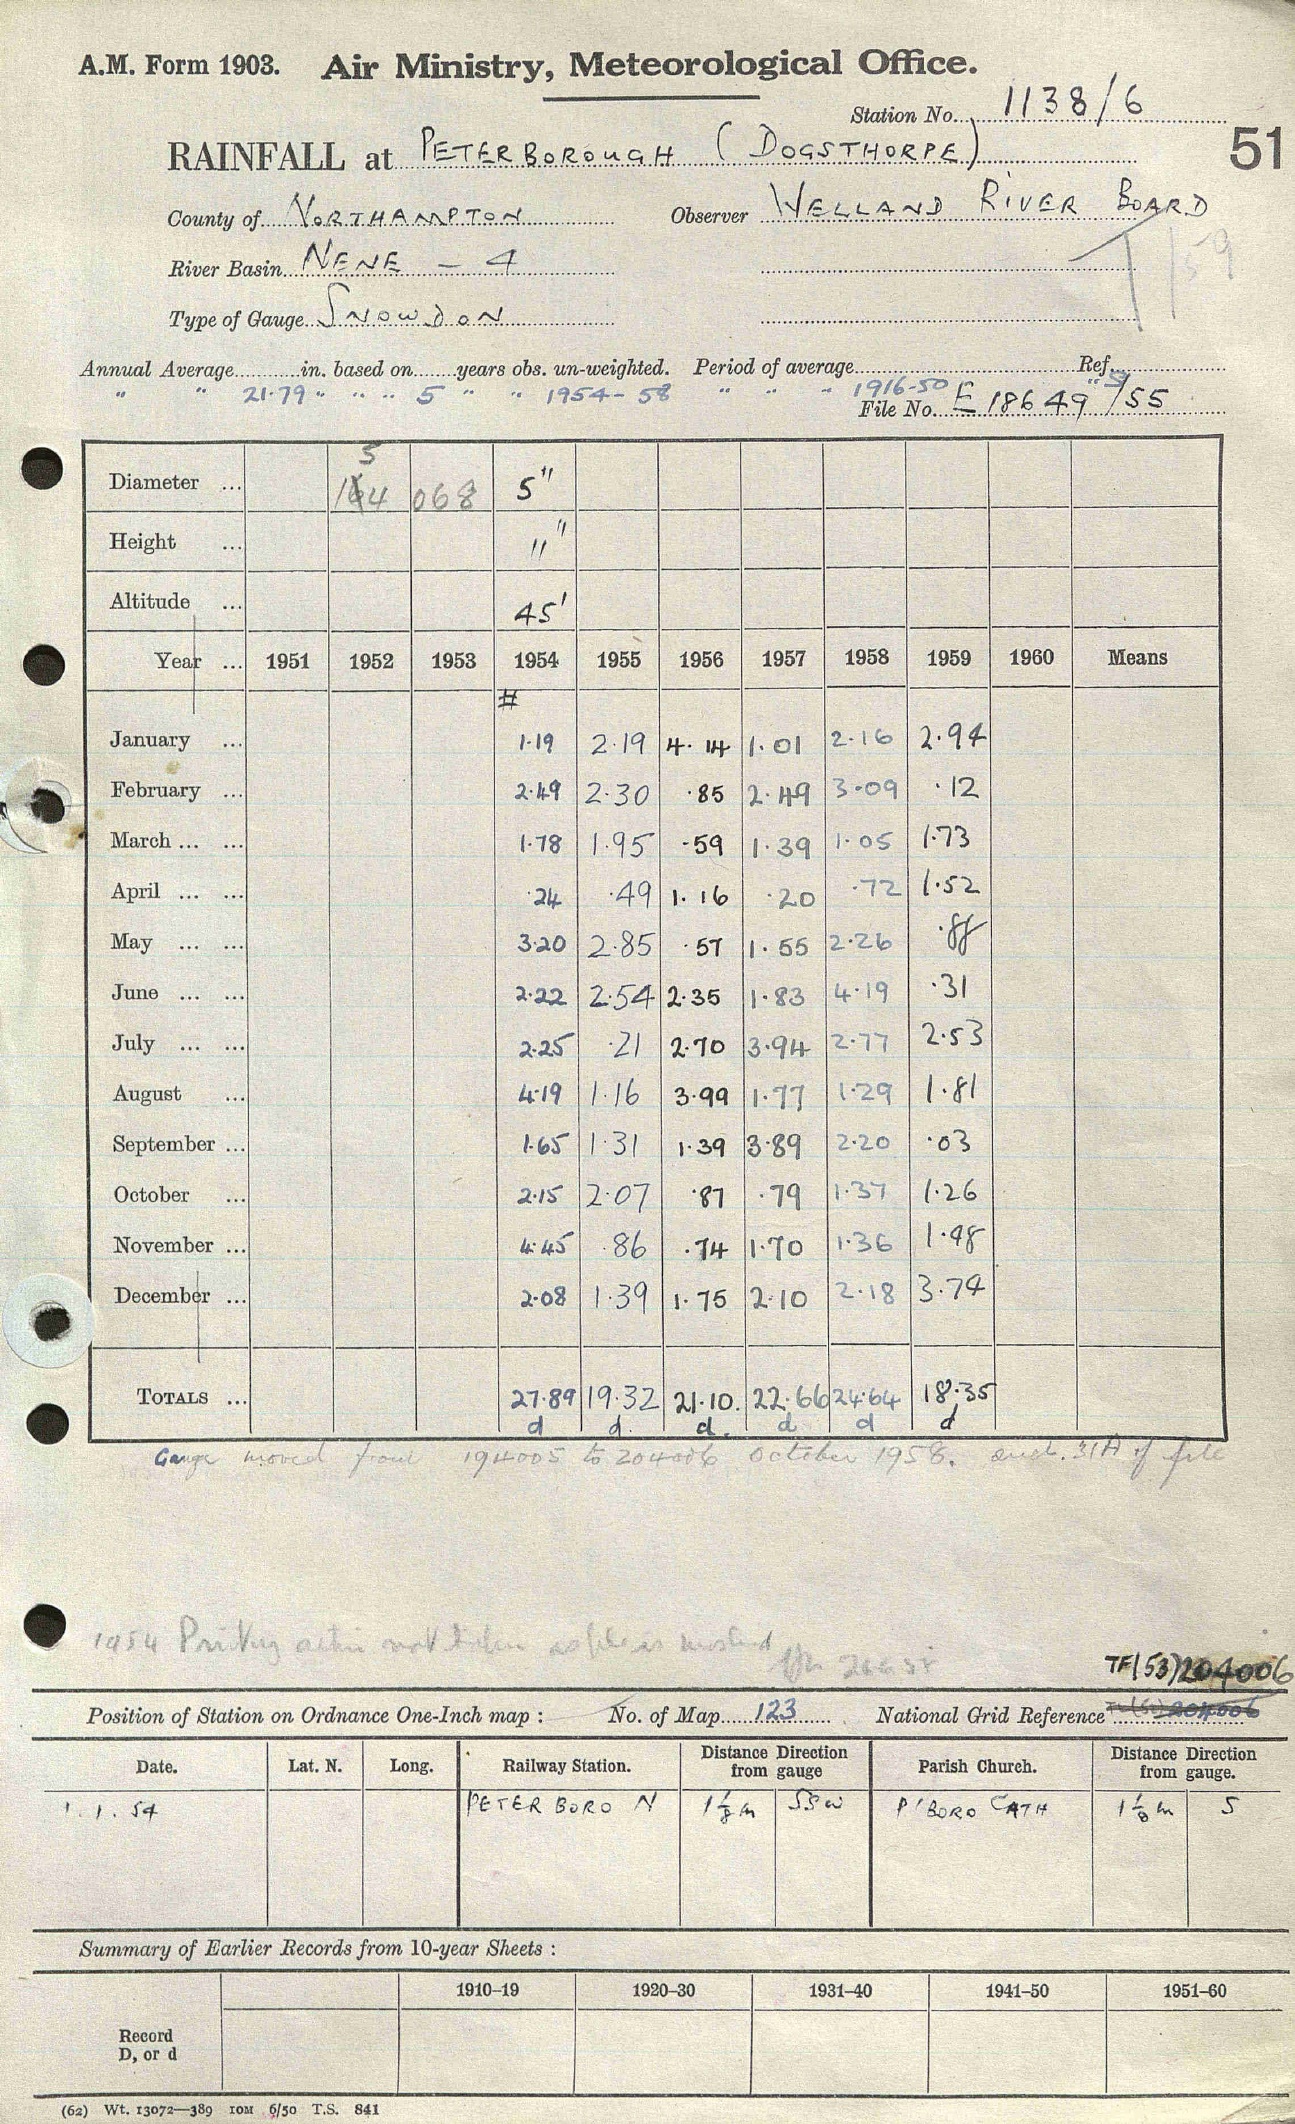 A.M. Form 1903. Air Ministry, Meteorological Office.
Station No. 1138/6
51
RAINFALL at PETERBOROUGH (DOGSTHORPE)
County of NORTHAMPTON Observer WELLAND RIVER BOARD
1/59
River Basin NENE – 4
Type of Gauge SNOWDON
Annual Average in. based on years obs. un-weighted. Period of average Ref.
" " 21.79 " " " 5 " " 1954-58 " " " 1916-50 "
File No. E 18649/55
Diameter ... 5 164 068 5"
Height ... 11"
Altitude ... 45'
Year ... 1951 1952 1953 1954 1955 1956 1957 1958 1959 1960 Means
#
January ... 1.19 2.19 4.14 1.01 2.16 2.94
February ... 2.49 2.30 .85 2.49 3.09 .12
March ... ... 1.78 1.95 .59 1.39 1.05 1.73
April ... ... .24 .49 1.16 .20 .72 1.52
May ... ... 3.20 2.85 .57 1.55 2.26 .88
June ... ... 2.22 2.54 2.35 1.83 4.19 .31
July ... ... 2.25 .21 2.70 3.94 2.77 2.53
August ... 4.19 1.16 3.99 1.77 1.29 1.81
September ... 1.65 1.31 1.39 3.89 2.20 .03
October ... 2.15 2.07 .87 .79 1.37 1.26
November ... 4.45 .86 .74 1.70 1.36 1.48
December ... 2.08 1.39 1.75 2.10 2.18 3.74
TOTALS ... 27.89 19.32 21.10. 22.66 24.64 18.35
d d. d. d d d
Gauge moved from 194005 to 204006 October 1958. encl. 31A of file
1954 Printing action not taken as file is
TF(53)204006
Position of Station on Ordnance One-Inch map : No. of Map 123 National Grid Reference 204006
Date. Lat. N. Long. Railway Station. Distance Direction from gauge Parish Church. Distance Direction from gauge.
1.1.54 PETERBORO N 1⅛ m SSW P'BORO CATH 1⅛ m S
Summary of Earlier Records from 10-year Sheets :
1910–19 1920–30 1931–40 1941–50 1951–60
Record
D, or d
(62) Wt. 13072—389 IOM 6/50 T.S. 841